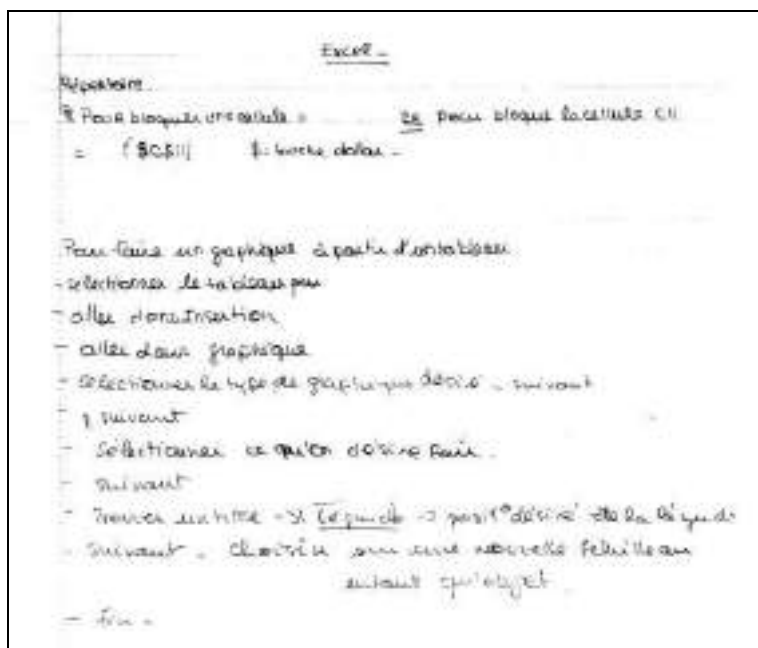 Excel -
Répertoire
Pour bloquer une cellule = ex pour bloqué la cellule C11
= ($C$11) $ : touche dollar -
Pour faire un graphique à partir d'un tableau
- selectionner le tableau
- aller dans Insertion
- aller dans graphique
- selectionner le type de graphique désiré - suivant
- suivant
- Sélectionner ce qu'on désire faire.
- suivant
- Trouver un titre -> Légende -> posit° désiré de la légende
- suivant - choisir sur une nouvelle feuille ou
entant qu'objet
- fin -